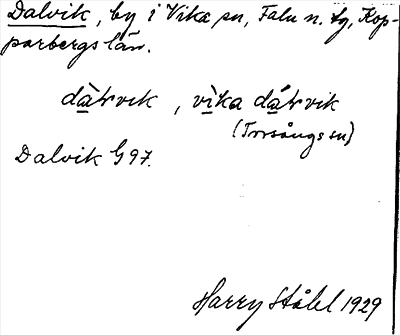 Dalvik, by i Vika sn, Falu n. tg, Kop-
parbergs län.
dàlvik, vìka dálvik
(Torsångs sn)
Dalvik G 97.
Harry Ståhl 1929